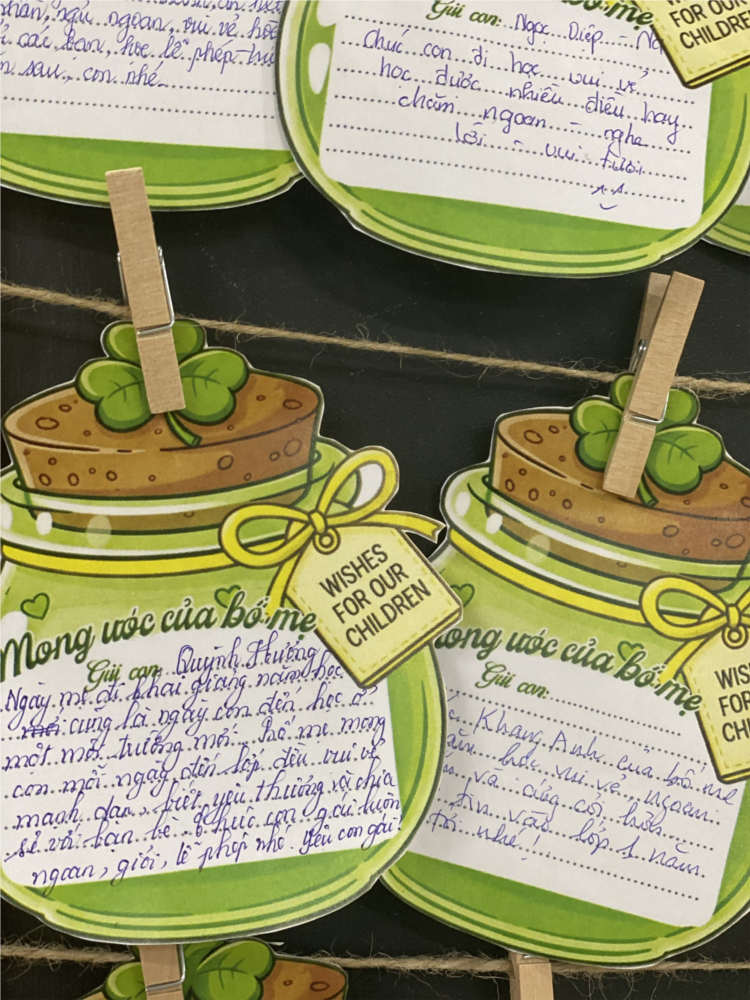 ngoan, vui vẻ
các bạn, học lễ phép
sau, con nhé
bố mẹ
Gửi con: Ngọc Diệp
Chúc con đi học vui vẻ,
học được nhiều điều hay
chăm ngoan - nghe
lời - vui tươi
^.^
FOR OUR
CHILDREN
WISHES
FOR OUR
CHILDREN
Mong ước của bố mẹ
Gửi con: Quỳnh Hương
Ngày mẹ đi khai giảng năm học
cũng là ngày con đến học ở
một môi trường mới. Bố mẹ mong
con mỗi ngày đến lớp đều vui vẻ
mạnh dạn, biết yêu thương và chia
sẻ với bạn bè. Chúc con gái luôn
ngoan, giỏi, lễ phép nhé. Yêu con gái!
WIS
FOR
CHI
ong ước của bố mẹ
Gửi con:
Khang Anh của bố mẹ
học vui vẻ, ngoan
và cứng cỏi, hơn
tin vào lớp 1 năm
tới nhé!